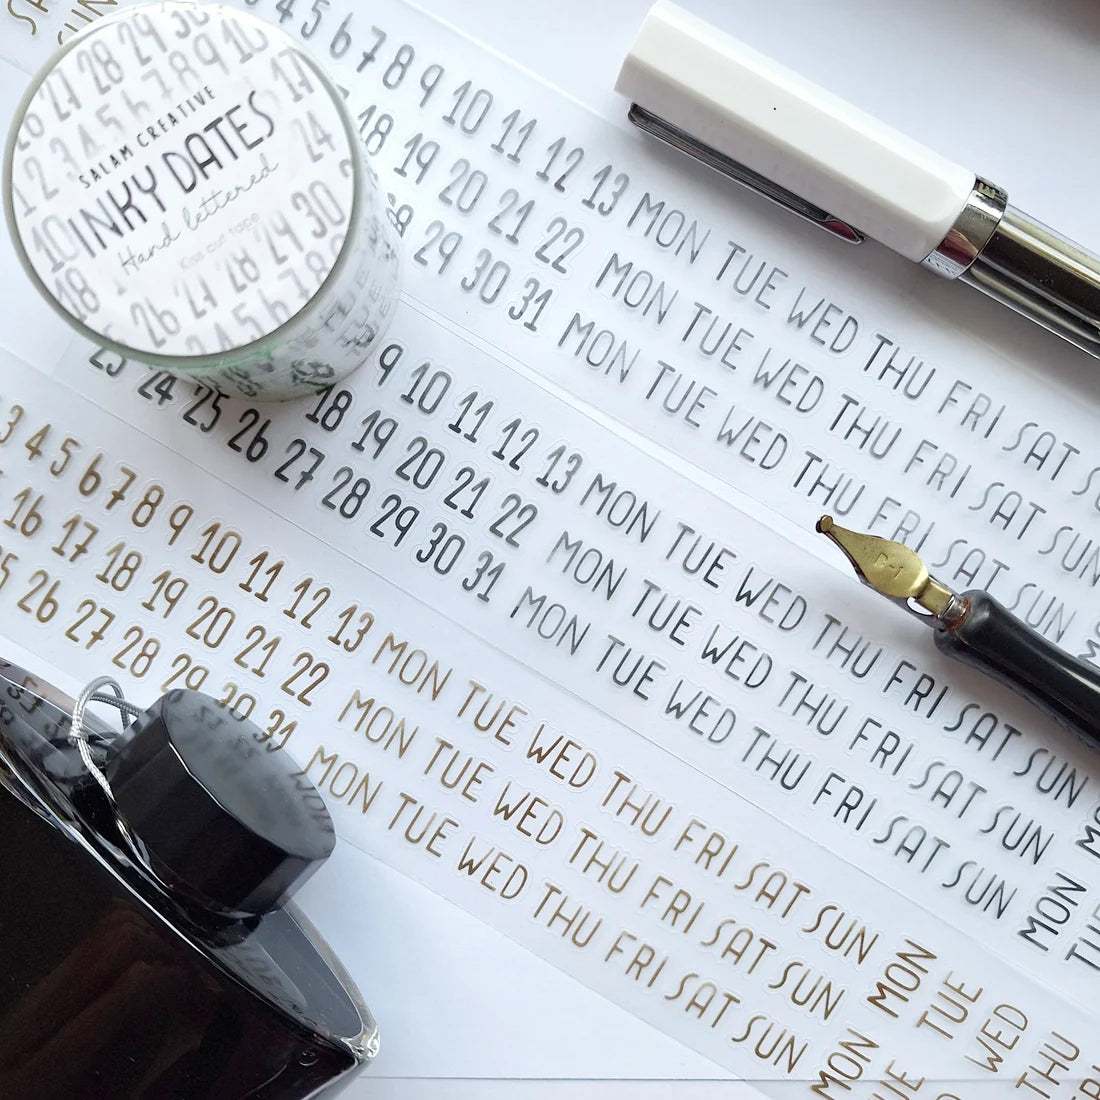 SALAM CREATIVE
INKY DATES
Hand lettered
Kiss cut tape
3 4 5 6 7 8 9 10 11 12 13 MON TUE WED THU FRI SAT
18 19 20 21 22 MON TUE WED THU FRI SAT SUN
28 29 30 31 MON TUE WED THU FRI SAT SUN
9 10 11 12 13 MON TUE WED THU FRI SAT SUN
18 19 20 21 22 MON TUE WED THU FRI SAT SUN
23 24 25 26 27 28 29 30 31 MON TUE WED THU FRI SAT SUN
3 4 5 6 7 8 9 10 11 12 13 MON TUE WED THU FRI SAT SUN
16 17 18 19 20 21 22 MON TUE WED THU FRI SAT SUN
25 26 27 28 29 30 31 MON TUE WED THU FRI SAT SUN
MON TUE WED THU
MON
B-1